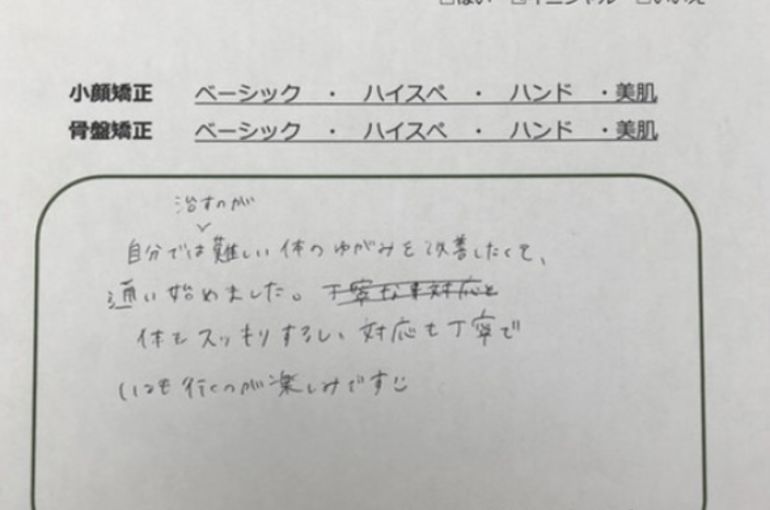 小顔矯正 ベーシック ・ ハイスペ ・ ハンド ・美肌
骨盤矯正 ベーシック ・ ハイスペ ・ ハンド ・美肌
治すのが
自分では難しい体のゆがみを改善したくて、
通い始めました。丁寧な対応と
体もスッキリするし、対応も丁寧で
いつも行くのが楽しみです